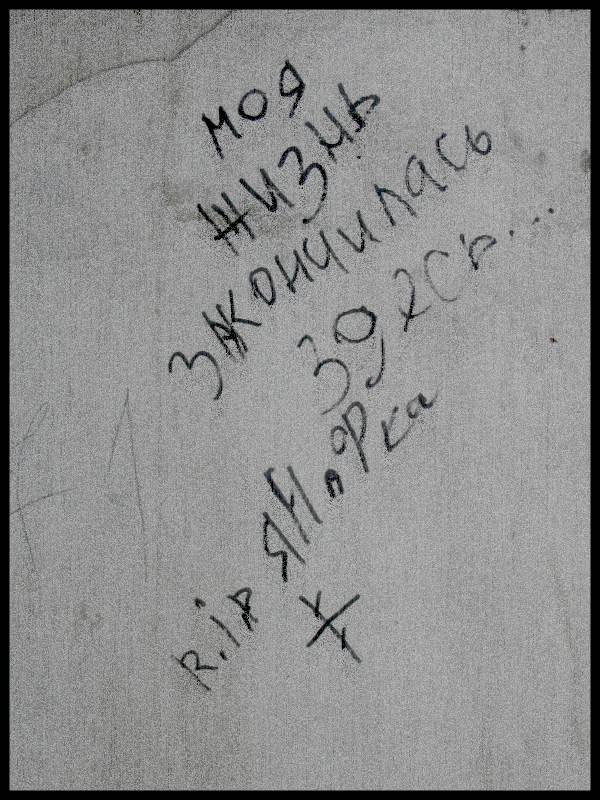 моя
жизнь
закончилась
здесь...
R.I.P Янарка